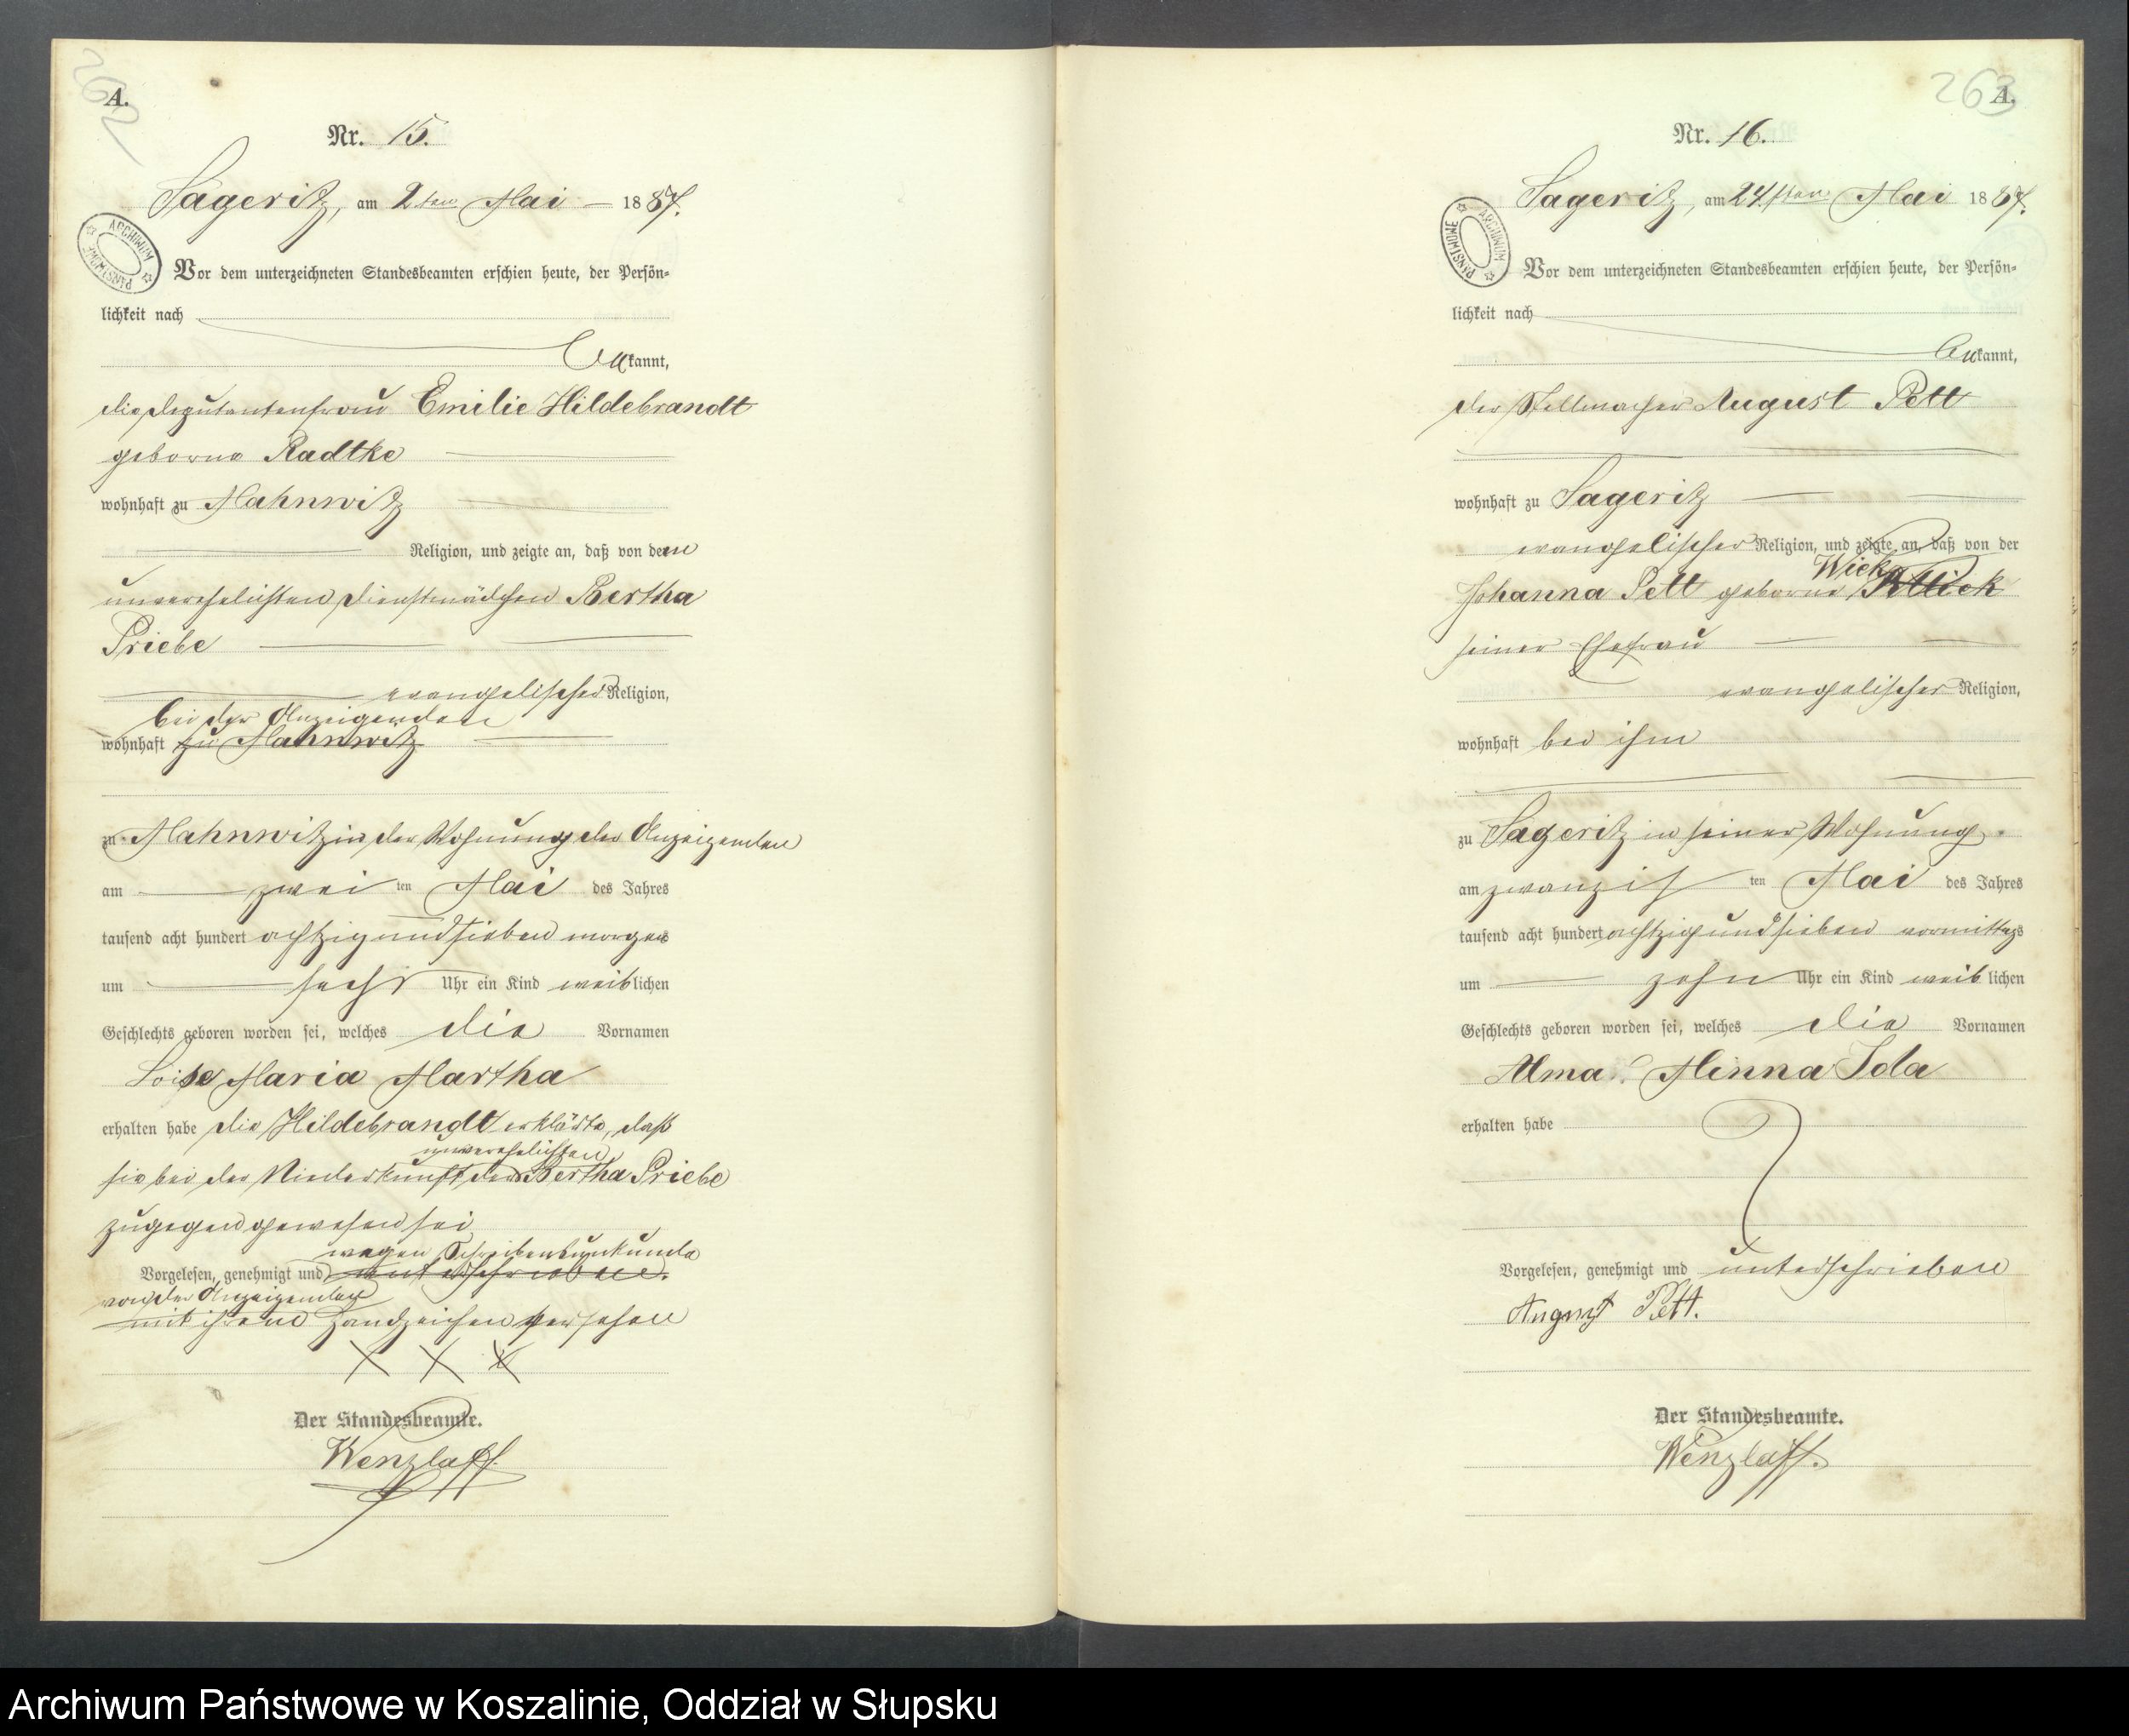 262
A.
Nr. 15.
Sageritz, am 2ten Mai 1887.
ARCHIWUM PAŃSTWOWE
Vor dem unterzeichneten Standesbeamten erschien heute, der Persön-
lichkeit nach
bekannt,
die Deputantenfrau Emilie Hildebrandt
geborne Radtke
wohnhaft zu Mahnwitz
Religion, und zeigte an, daß von dem
unverehelichten Dienstmädchen Bertha
Priebe
evangelischer Religion,
bei der Anzeigenden
wohnhaft zu Mahnwitz
zu Mahnwitz in der Wohnung der Anzeigenden
am zwei ten Mai des Jahres
tausend acht hundert achtzig und sieben morgens
um sechs Uhr ein Kind weiblichen
Geschlechts geboren worden sei, welches die Vornamen
Loise Maria Martha
erhalten habe die Hildebrandt erklärte, daß
unverehelichten
sie bei der Niederkunft der Bertha Priebe
zugegen gewesen sei
wegen Schreibensunkunde
Vorgelesen, genehmigt und unterschrieben.
von der Anzeigenden
mit ihrem Handzeichen versehen
X X X
Der Standesbeamte.
Wenzlaff.
263
A.
Nr. 16.
Sageritz, am 24sten Mai 1887.
ARCHIWUM PAŃSTWOWE
Vor dem unterzeichneten Standesbeamten erschien heute, der Persön-
lichkeit nach
bekannt,
der Stellmacher August Pett
wohnhaft zu Sageritz
evangelischer Religion, und zeigte an, daß von der
Wick
Johanna Pett geborne Pollick
seiner Ehefrau
evangelischer Religion,
wohnhaft bei ihm
zu Sageritz in seiner Wohnung
am zwanzig ten Mai des Jahres
tausend acht hundert achtzig und sieben vormittags
um zehn Uhr ein Kind weiblichen
Geschlechts geboren worden sei, welches die Vornamen
Alma Minna Ida
erhalten habe
Vorgelesen, genehmigt und unterschrieben
August Pett.
Der Standesbeamte.
Wenzlaff.
Archiwum Państwowe w Koszalinie, Oddział w Słupsku